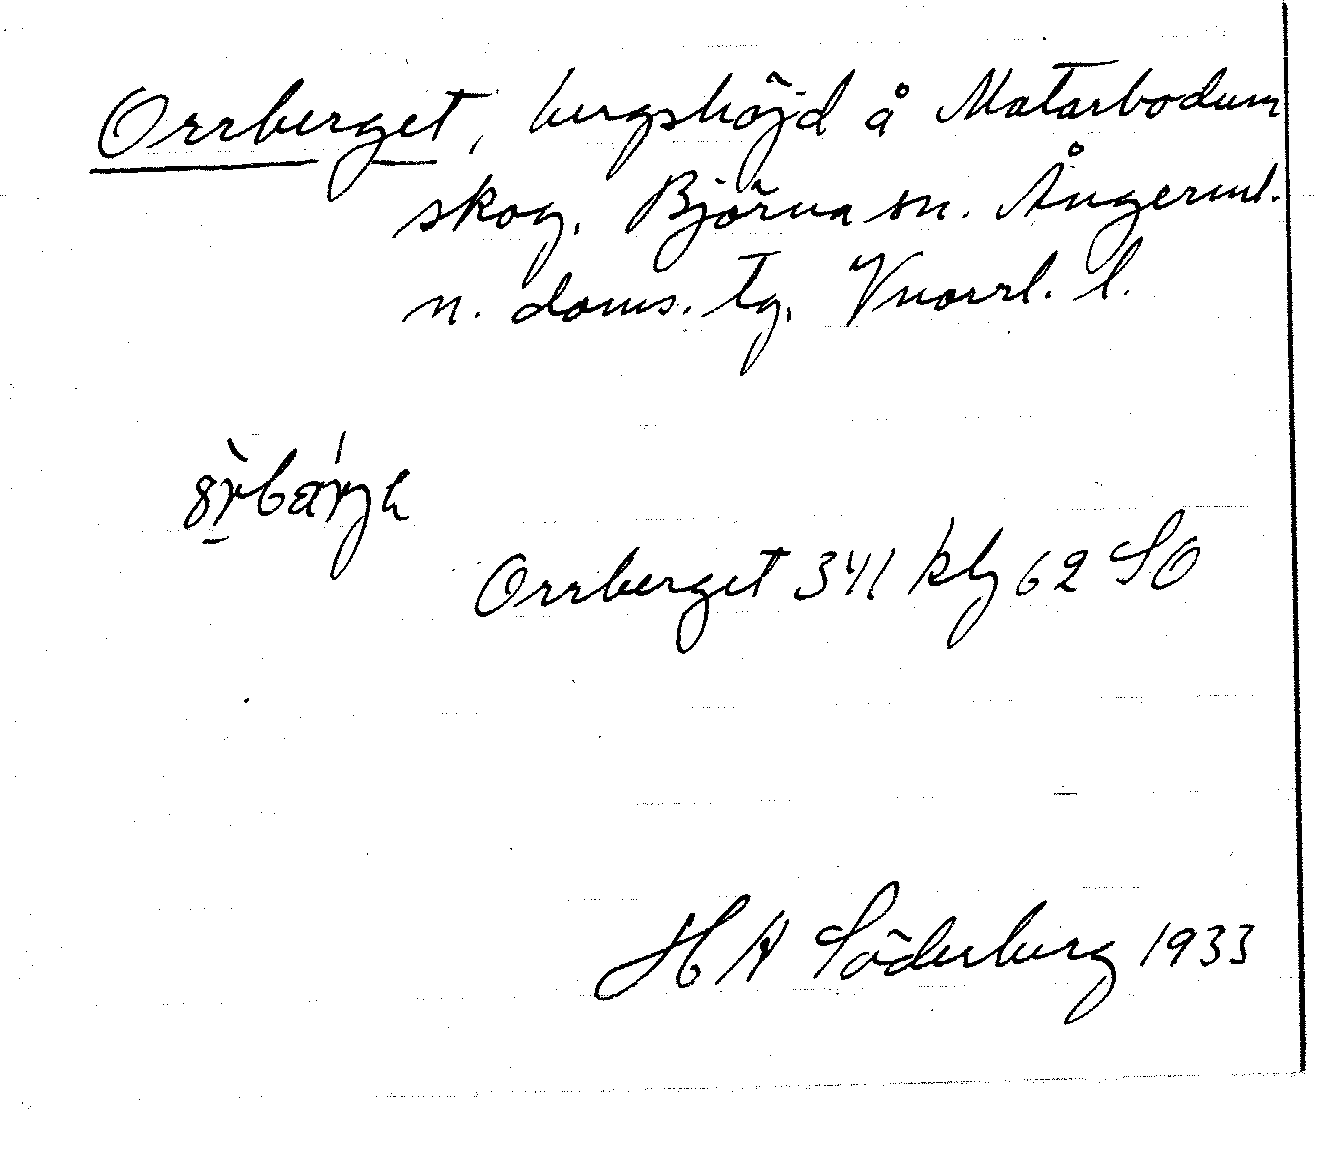 Orrberget, bergshöjd å Matarbodum
skog. Björna sn. Ångerml.
n. doms. tg. Vnorrl. l.
Orrberget 341 kbg 62 SO
H A Söderberg 1933